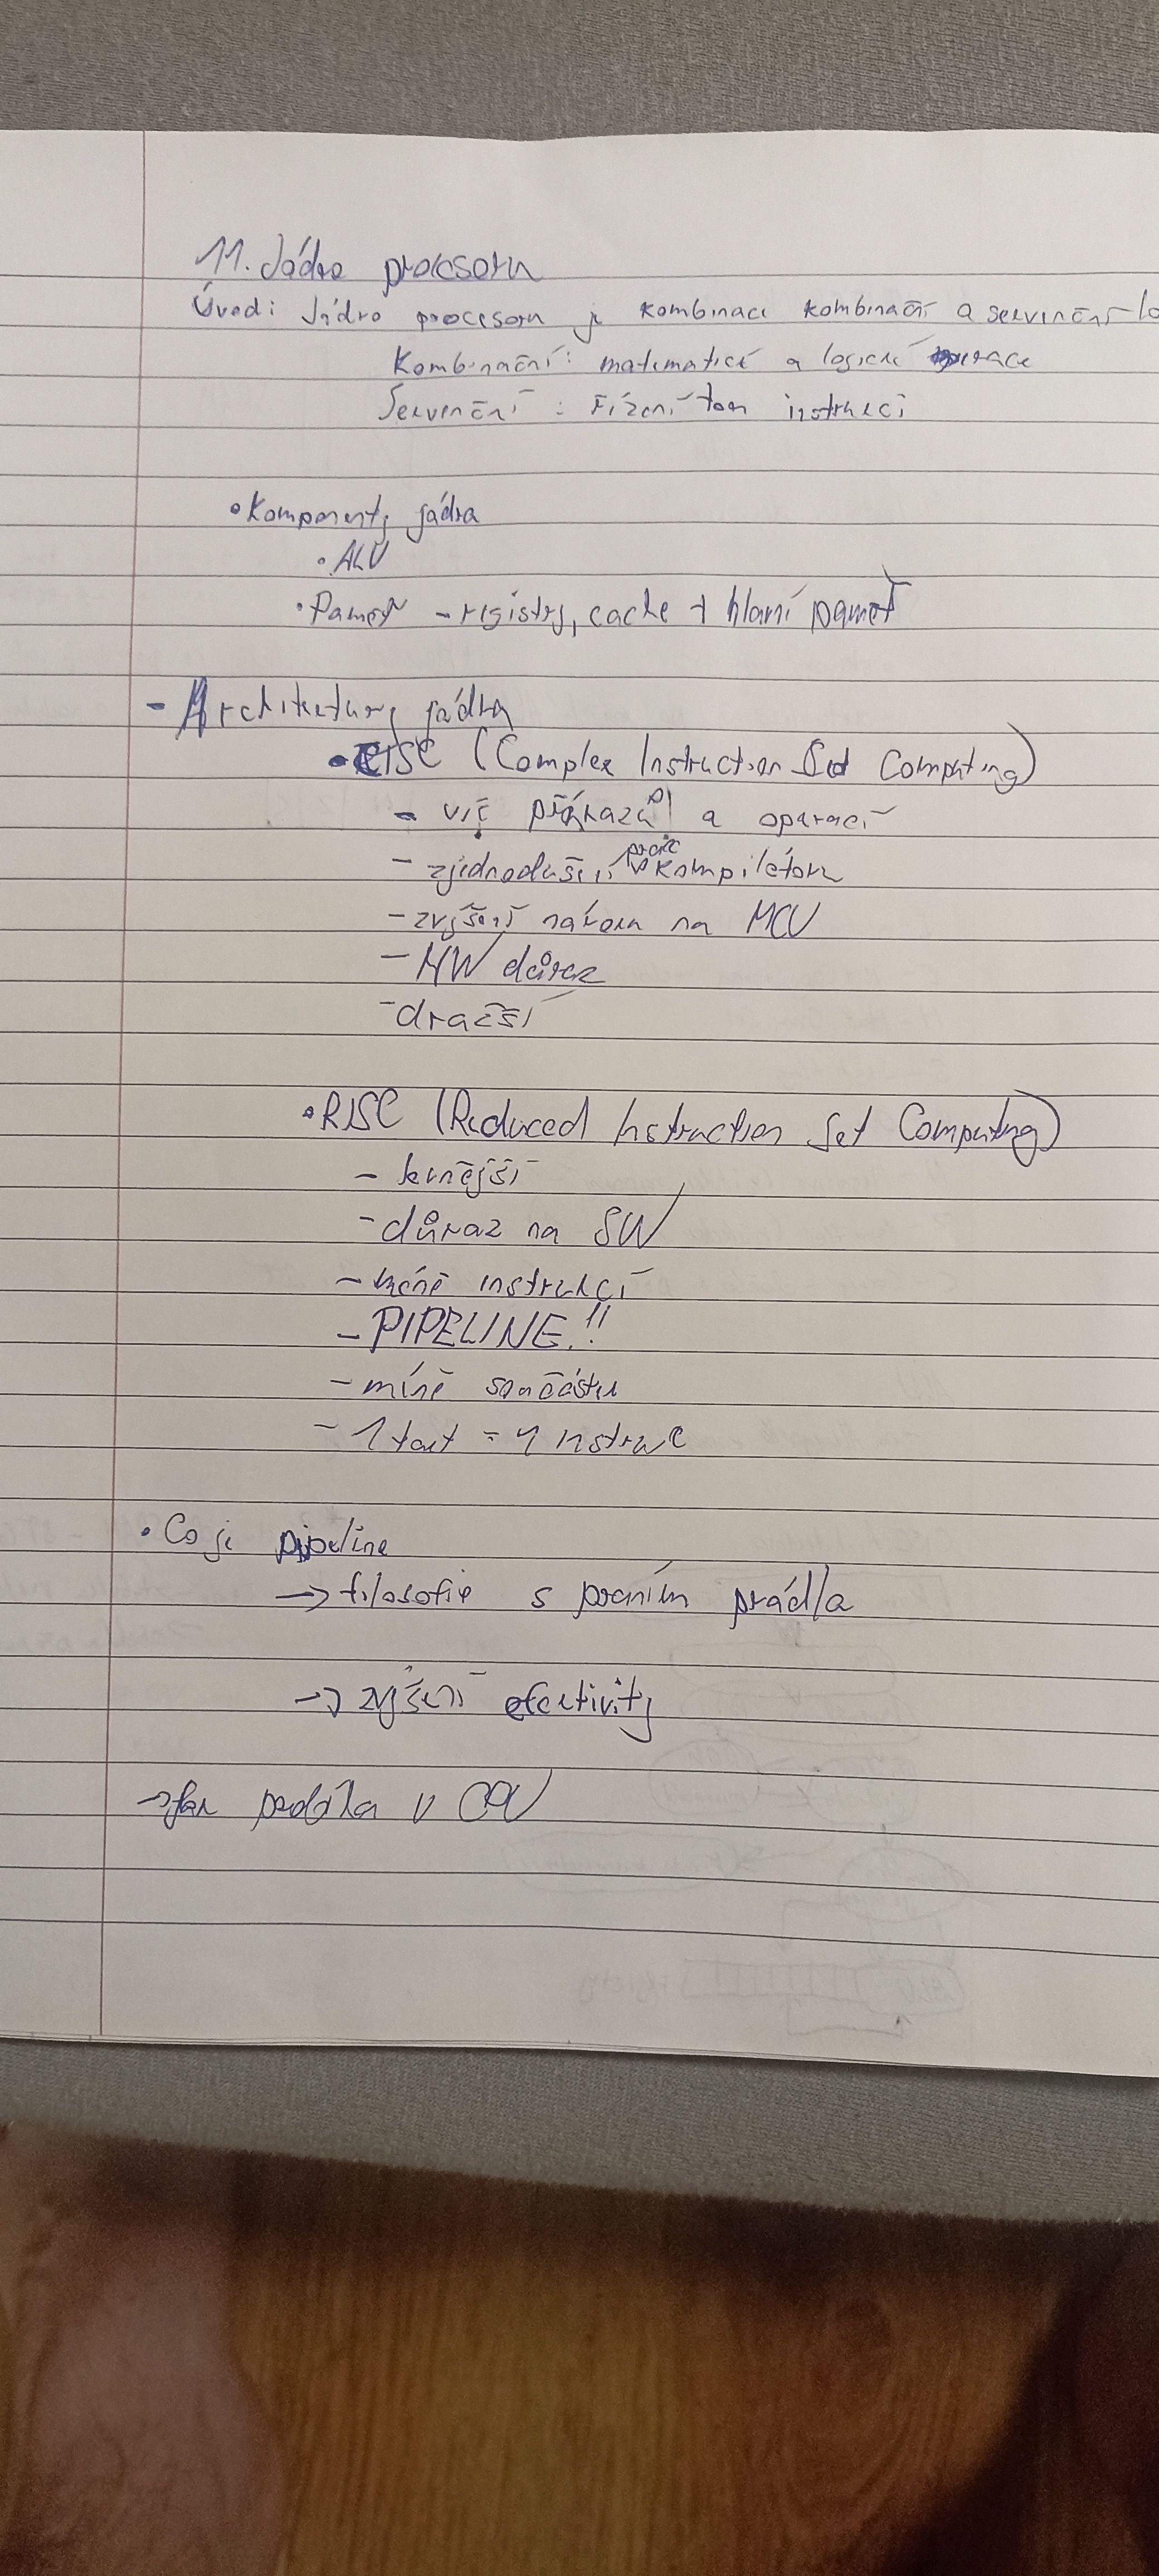 11. Jádro procesoru
Úvod: Jádro procesoru je kombinace kombinační a sekvenční lo
Kombinační: matematické a logické operace
Sekvenční: řízení toku instrukcí
• Komponenty jádra
• ALU
• Paměť - registry, cache + hlavní paměť
- Architektury jádra
• CISC (Complex Instruction Set Computing)
- víc příkazů a operací
- zjednodušení práce kompilátoru
- zvýšení nároku na MCU
- HW důraz
- dražší
• RISC (Reduced Instruction Set Computing)
- levnější
- důraz na SW
- méně instrukcí
- PIPELINE!!
- míně součástek
- 1 takt = 1 instrukce
• Co je pipeline
→ filosofie s praním prádla
→ zvýšení efektivity
→ v CPU